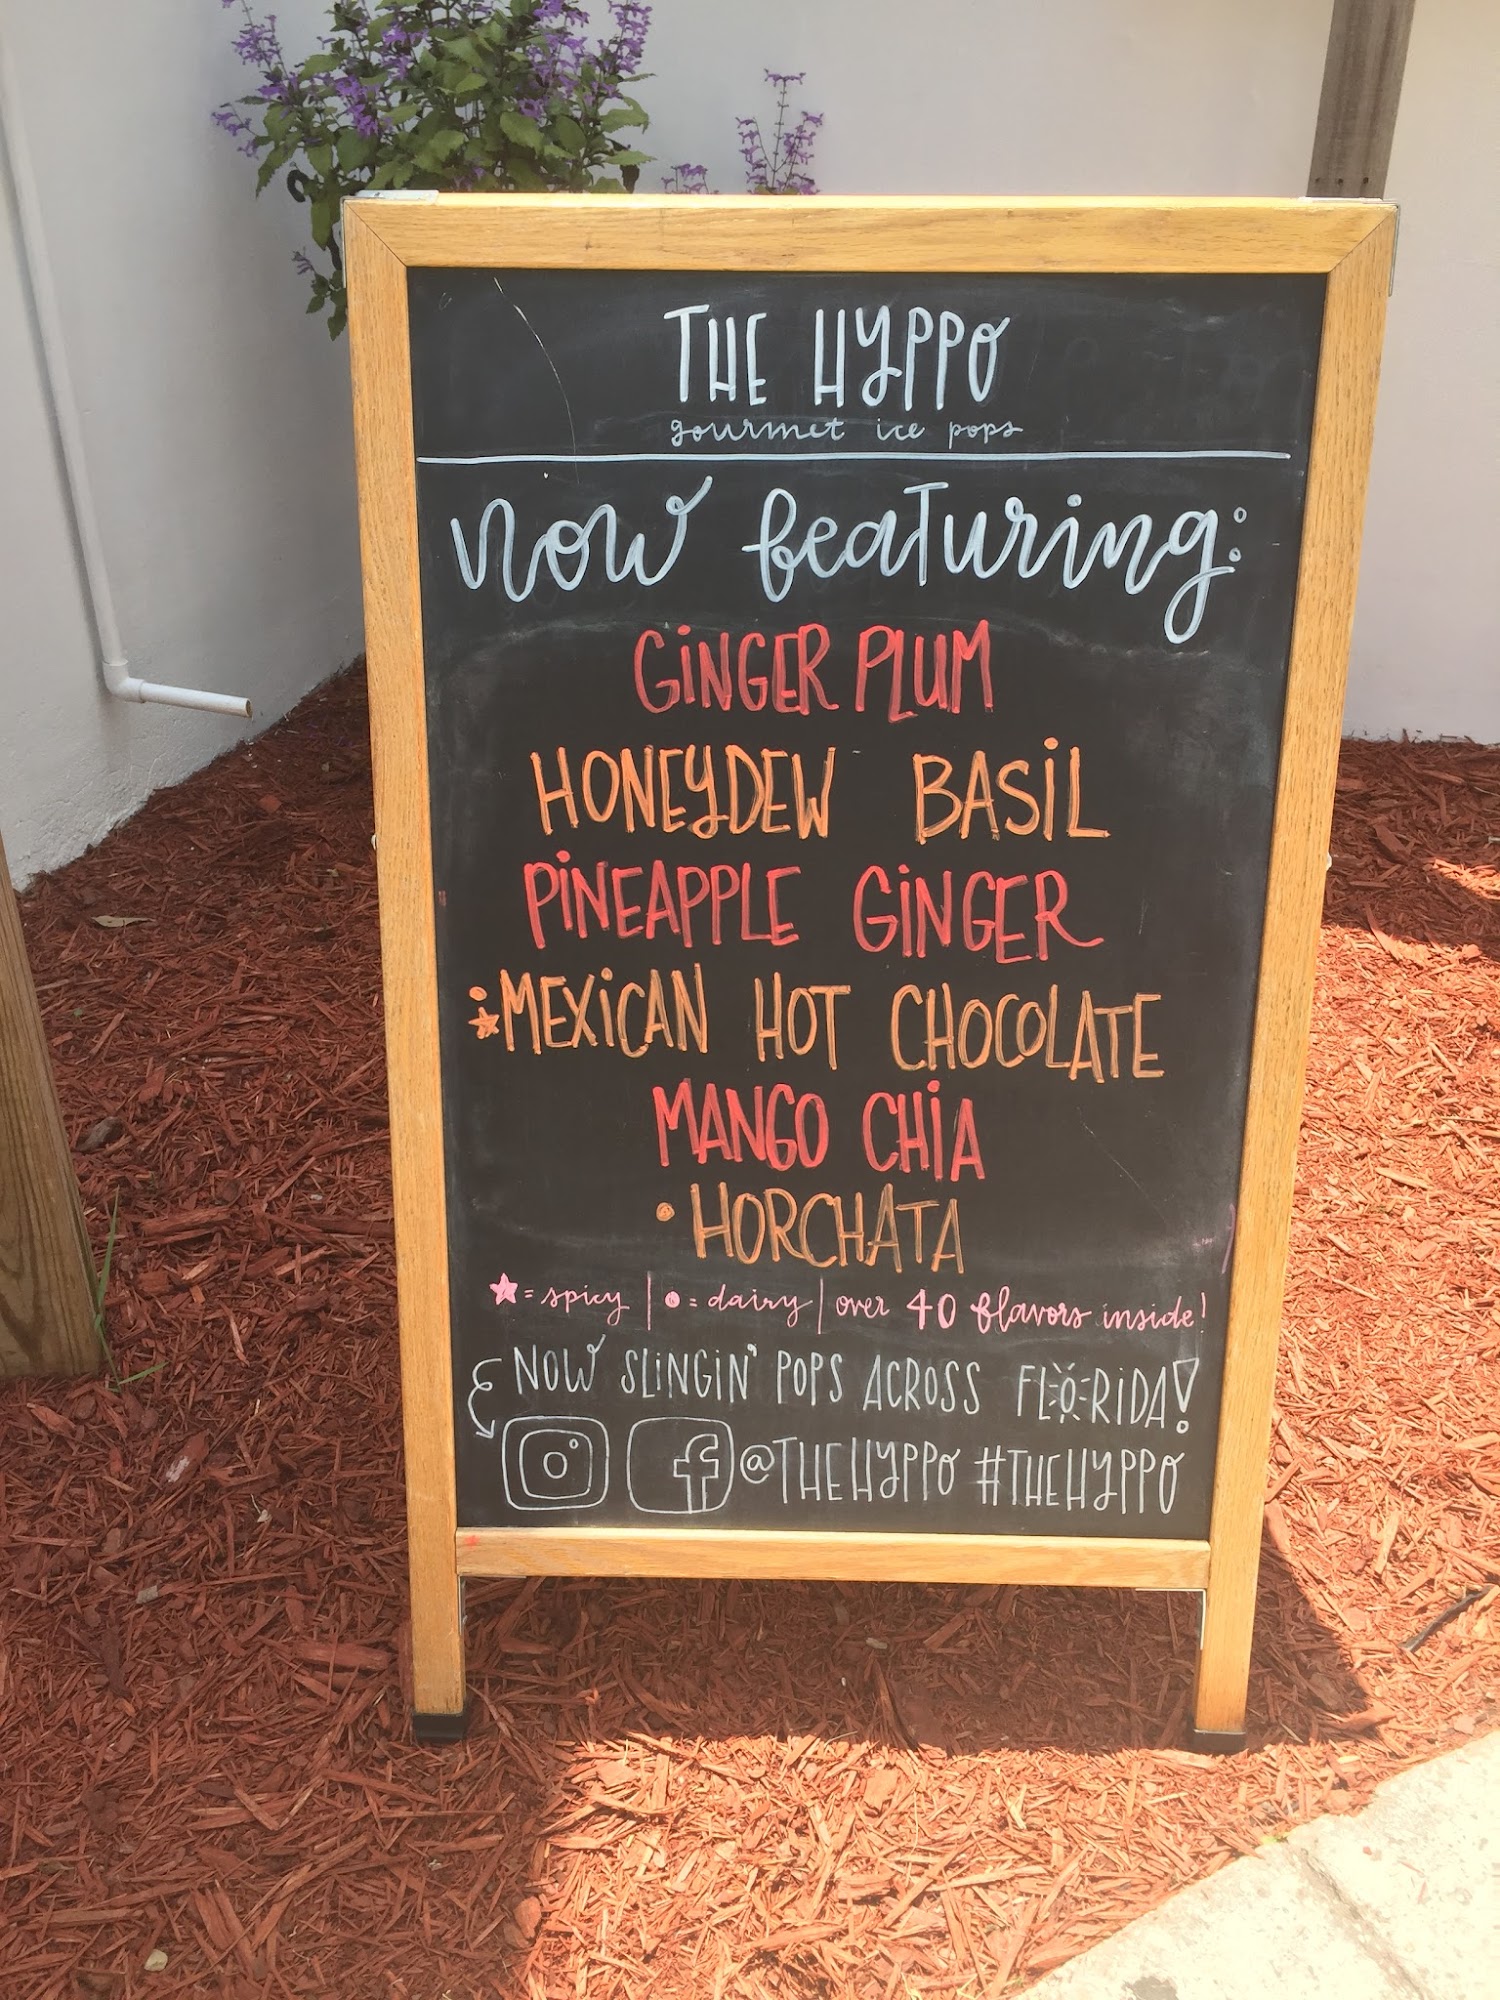 THE HYPPO
gourmet ice pops
now featuring:
GINGER PLUM
HONEYDEW BASIL
PINEAPPLE GINGER
•★MEXICAN HOT CHOCOLATE
MANGO CHIA
•HORCHATA
★=spicy | •=dairy | over 40 flavors inside!
NOW SLINGIN' POPS ACROSS FLORIDA!
@THEHYPPO #THEHYPPO